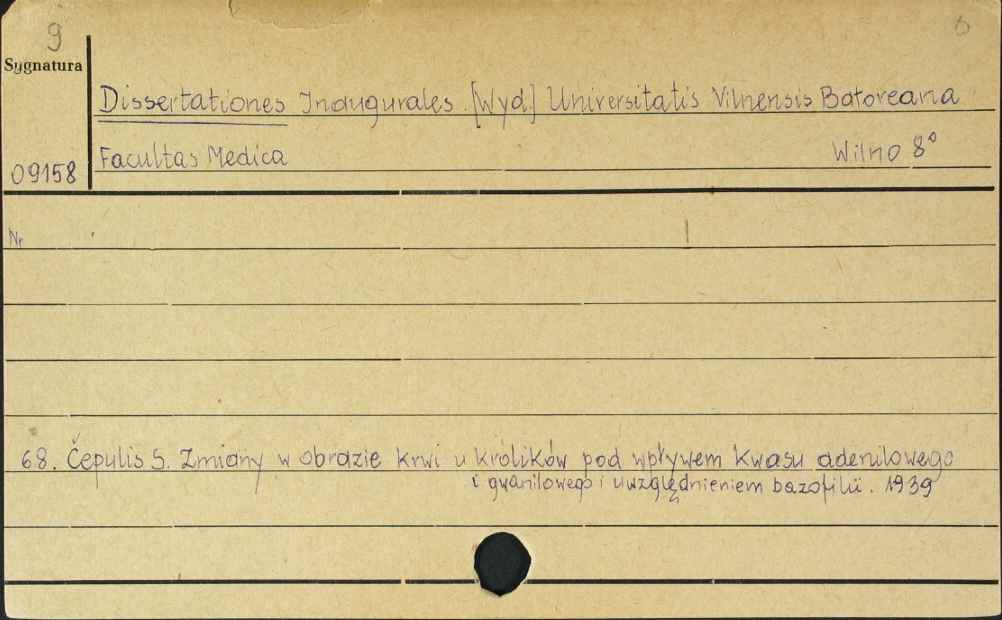 9
6
Sygnatura
Dissertationes Inaugurales. [Wyd.] Universitatis Vilnensis Batoreana
Facultas Medica Wilno 8°
09158
Nr
68. Čepulis S. Zmiany w obrazie krwi u królików pod wpływem kwasu adenilowego
i gwanilowego i uwzględnieniem bazofilii. 1939